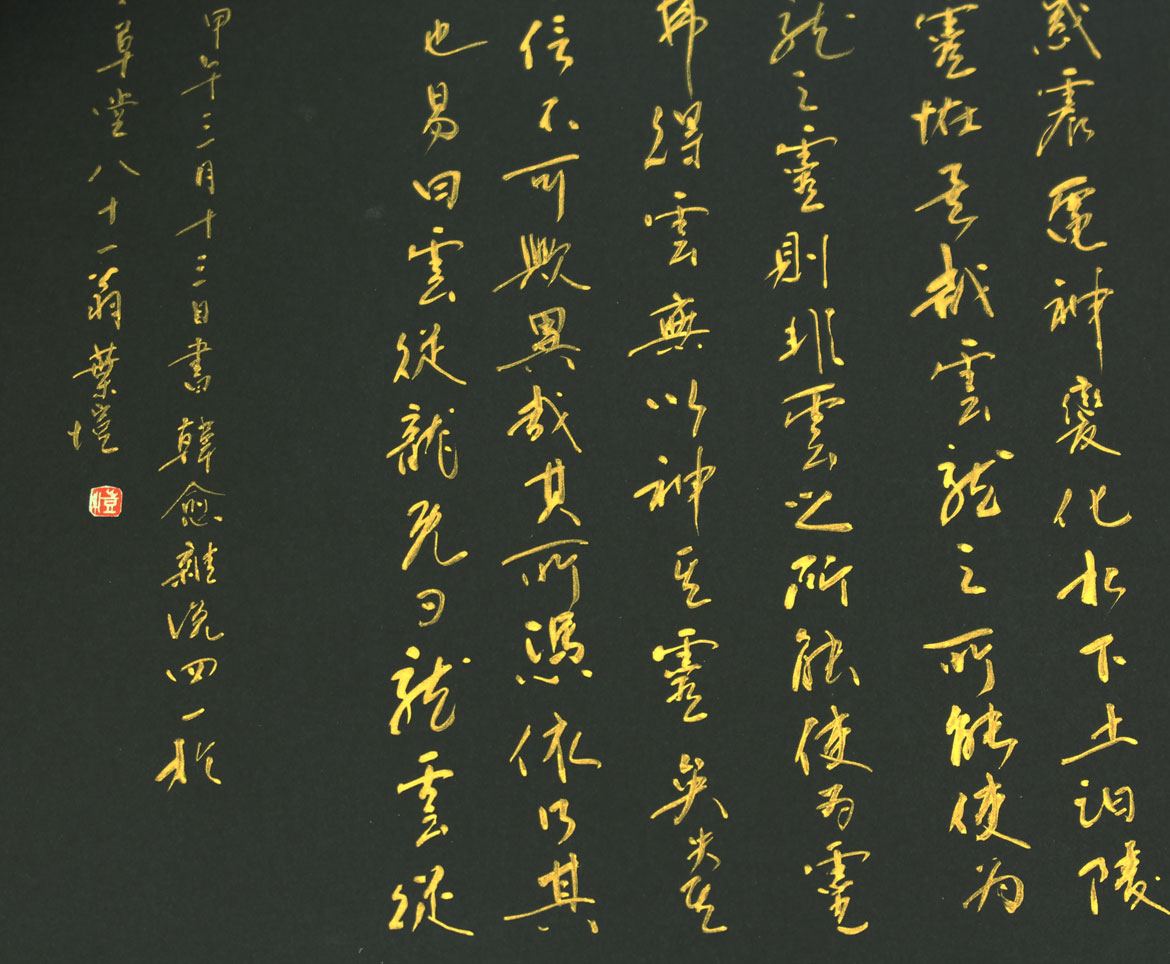 感震電神變化水下土汩陵
靈怪矣哉雲龍之所能使為
龍之靈則非雲之所能使為靈
弗得雲無以神其靈矣失其
信不可歟異哉其所憑依乃其
也易曰雲從龍既曰龍雲從
甲午三月十三日書韓愈雜說四一於
草堂八十一翁葉愷
愷